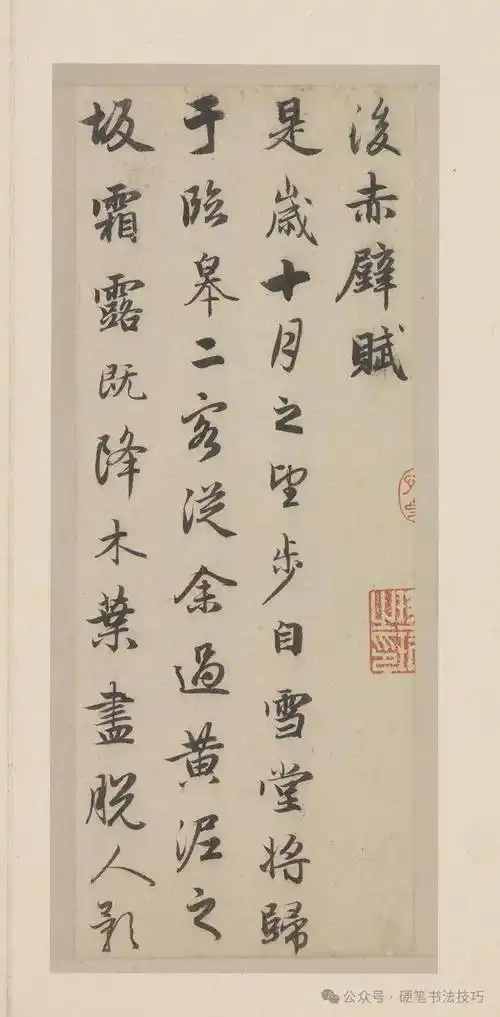 後赤壁賦
是歲十月之望步自雪堂將歸
于臨皋二客從余過黃泥之
坂霜露既降木葉盡脱人影
公众号·硬笔书法技巧